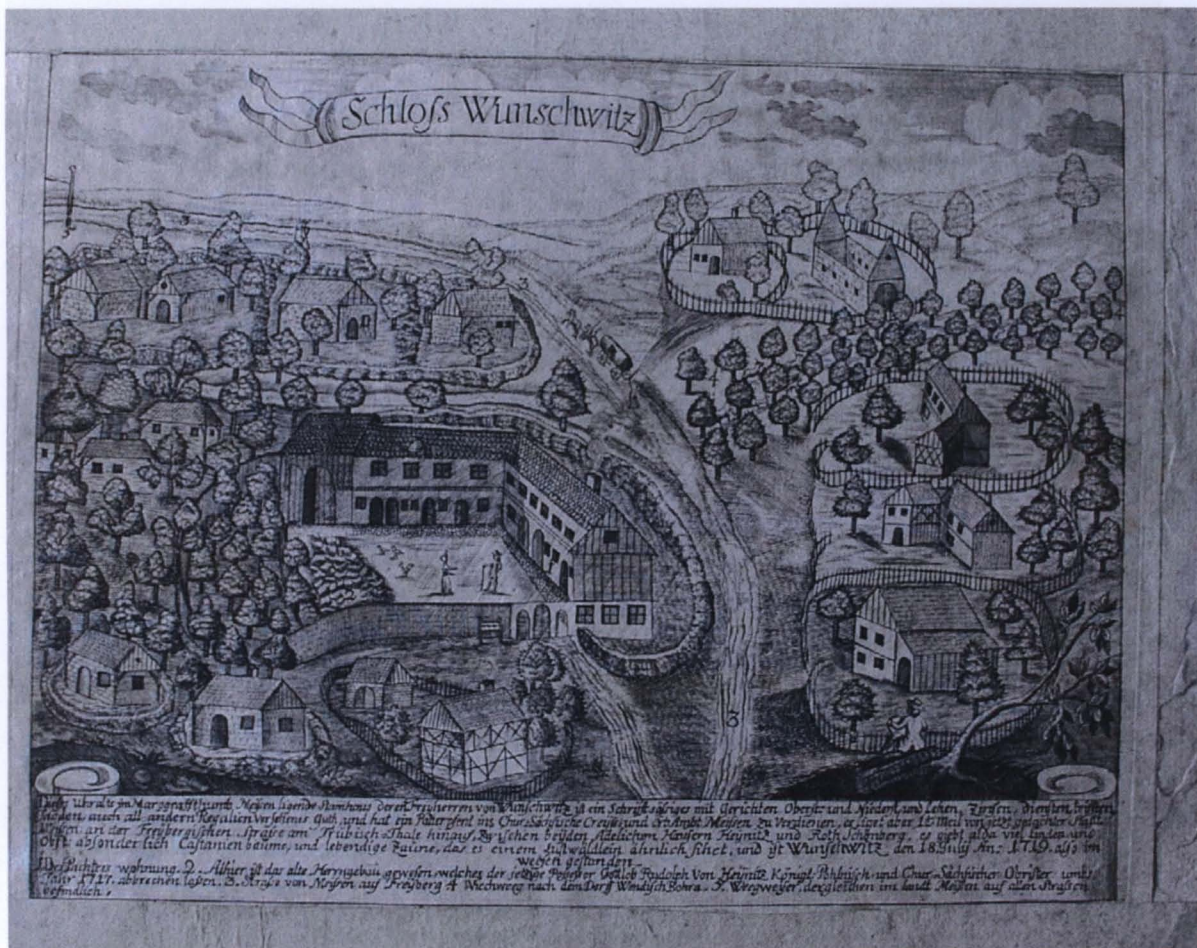 Schloss Wunschwitz
3
4
3
Dieses Uhralte im Marggraffthumb Meysen ligende Stamhaus derer Freyherren von Wunschwitz ist ein Schrifftsässiges mit Gerichten Oberst und Niederst und Lehen, Zinsen, Diensten,
auch all andern Regalien versehenes Guth, und hat ein Ritterpferd ins Chur-Sächsische Creyss und Ambt Meysen zu Verdienen, es liget aber 1½ Meil von
Meysen an der Freybergischen Strasse am Tribisch-Thale hinauf, Zwischen beyden Adelichem Häusern Heynitz und Roth Schönberg, es giebt alda viel linden und
Obst: absonderlich Castanien beume, und lebendige Zäune, das es einem lustwäldlein ähnlich sihet, und ist Wunschwitz den 18 Julij An: 1719. also im
wesen gestanden
1. Des Pachters wohnung. 2. Alhier ist das alte Herrngebäü gewesen welches der jetzige Possessor Gottlob Rudolph Von Heynitz Königl: Pohlnisch und Chur-Sächsischer Obrister umbs
Jahr 1717. abbrechen lassen. 3. Strasse von Meysen auf Freyberg 4 Viechweeg nach dem Dorff Wendisch Bohra. 5. Weegweyser, dergleichen im landt Meysen auf allen Strassen
befindlich.